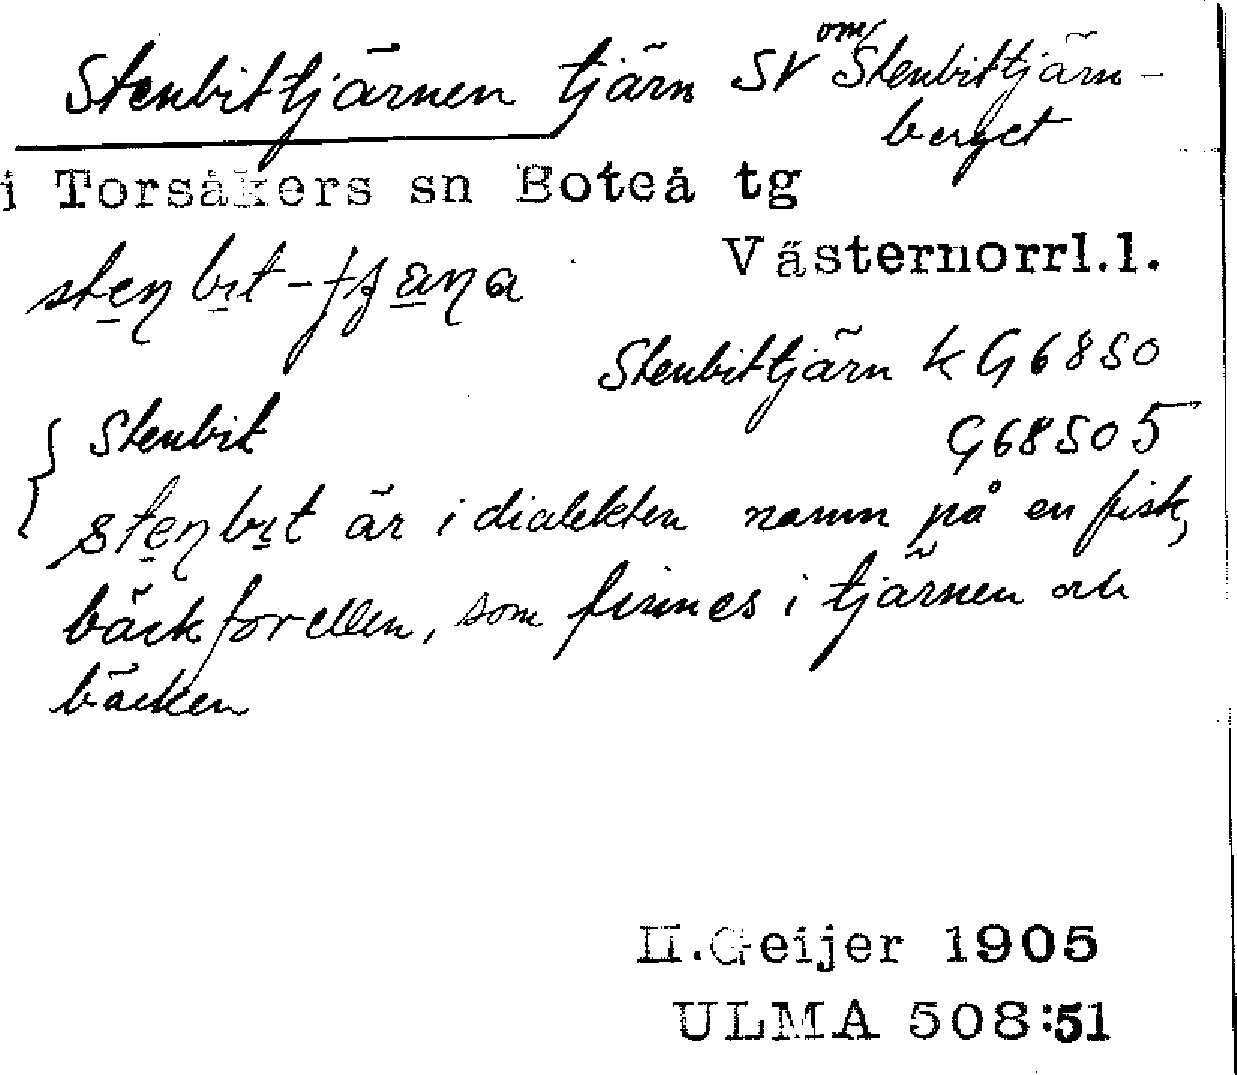 Stenbittjärnen tjärn SV om Stenbittjärn-
berget
i Torsåkers sn Boteå tg
Västernorrl.l.
Stenbittjärn k G6850
Stenbit G68505
är i dialekten namn på en fisk,
bäckforellen, som finnes i tjärnen och
bäcken
H.Geijer 1905
ULMA 508:51